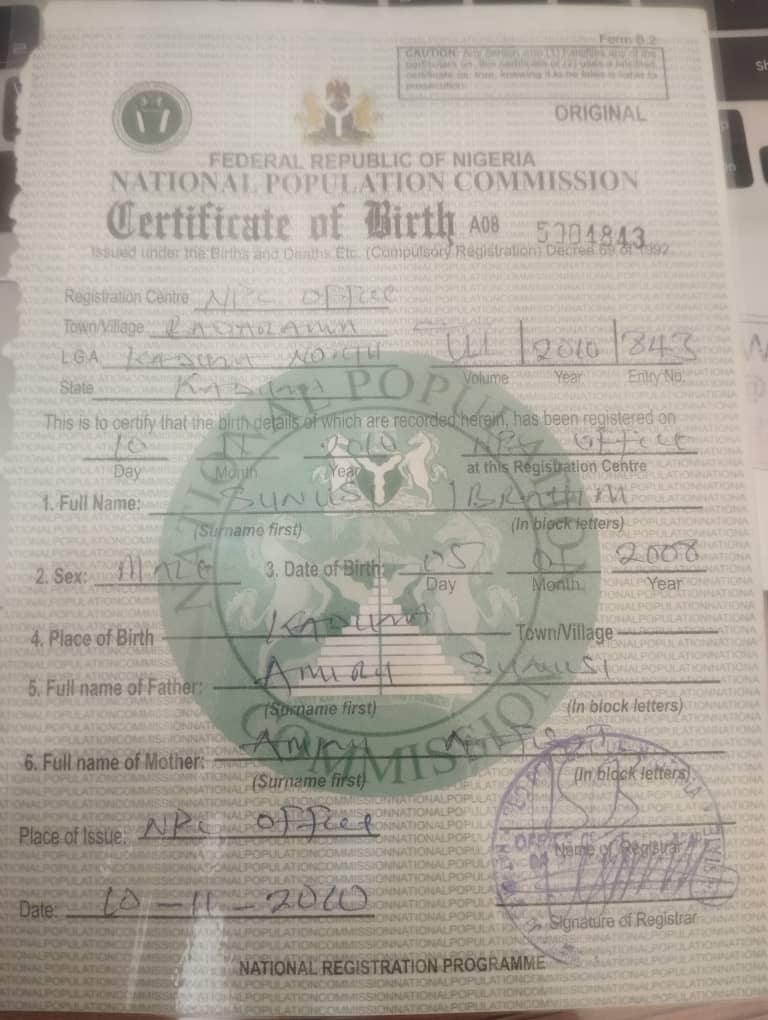 Form B.2
CAUTION: Any person who (1) falsifies any of the
particulars on this certificate or (2) uses a falsified
certificate as true, knowing it to be false is liable to
prosecution.
ORIGINAL
FEDERAL REPUBLIC OF NIGERIA
NATIONAL POPULATION COMMISSION
Certificate of Birth A08 5704843
Issued under the Births and Deaths Etc. (Compulsory Registration) Decree 69 of 1992
Registration Centre NPC OFFICE
Town/Village
L.G.A. KADUNA NORTH 2010 843
State KADUNA Volume Year Entry No.
This is to certify that the birth details of which are recorded herein, has been registered on
10 11 2010 NPC OFFICE
Day Month Year at this Registration Centre
1. Full Name: SUNUSI IBRAHIM
(Surname first) (In block letters)
2. Sex: MALE 3. Date of Birth: 05 01 2008
Day Month Year
4. Place of Birth KADUNA Town/Village
5. Full name of Father: SUNUSI
(Surname first) (In block letters)
6. Full name of Mother:
(Surname first) (In block letters)
Place of Issue: NPC OFFICE
Name of Registrar
Date: 10-11-2010
Signature of Registrar
NATIONAL REGISTRATION PROGRAMME
NATIONAL POPULATION COMMISSION